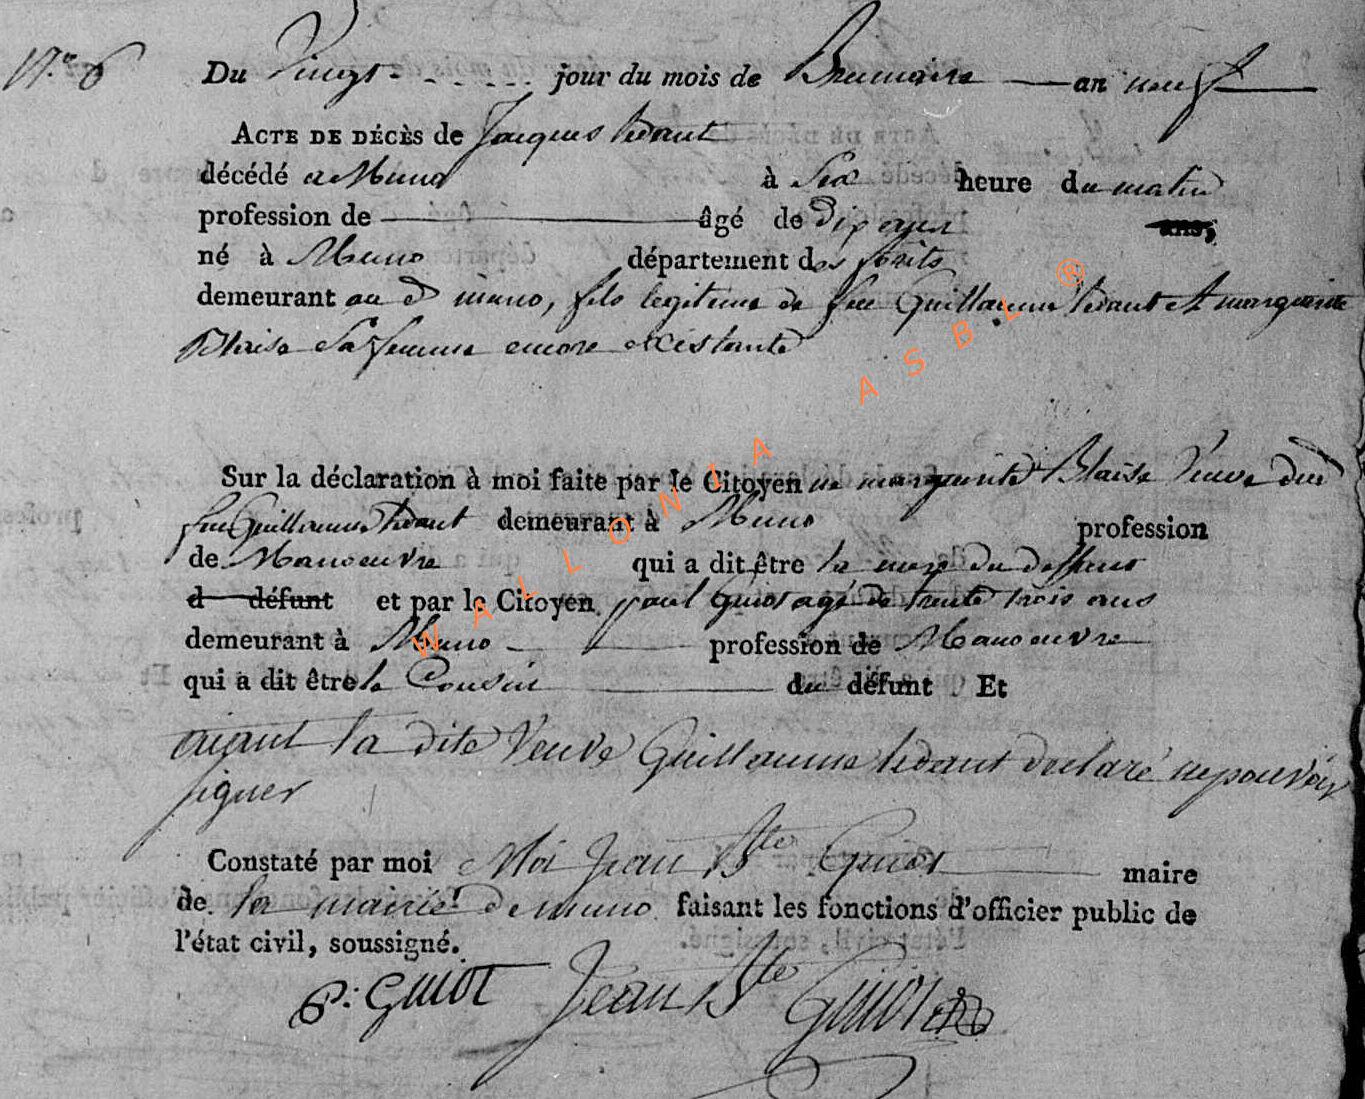 N.o 6 Du Vingt jour du mois de Brumaire an neuf
ACTE DE DÉCÈS de Jacques hedant
décédé a Muno à Six heure du matin
profession de âgé de dix ans,
né à Muno département des forêts
demeurant au d muno, fils legitime de feu Guillaume hedant et marguerite
Blaise Sa femme encore existante
Sur la déclaration à moi faite par le Citoyenne marguerite Blaise Veuve du
feu Guillaume hedant demeurant à Muno profession
de Manoeuvre qui a dit être la mere du deffunt
d défunt et par le Citoyen paul Guiot agé de trente trois ans
demeurant à Muno profession de Manoeuvre
qui a dit être le Cousin du défunt Et
aiant la dite Veuve Guillaume hedant declaré ne pouvoir
signer
Constaté par moi Moi Jean Bte Guiot maire
de la mairie de muno faisant les fonctions d'officier public de
l'état civil, soussigné.
P: GUIOT Jean Bte Guiot
WALLONIA ASBL ®